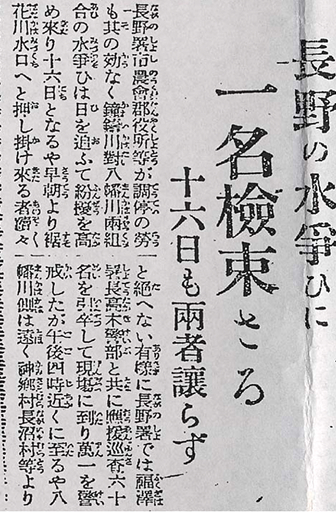 長野の水爭ひに
一名檢束さる
十六日も兩者讓らず
長野署市農會郡役所等が調停の勞
も其の効なく鐘鑄川對八幡川兩組
合の水爭ひは日を追ふて紛擾を高
め來り十六日となるや早朝より裾
花川水口へと押し掛け來る者續々
と絶へない有樣に長野署では福澤
署長高木警部と共に應援巡査六十
名を引卒して現場に到り萬一を警
戒したが午後四時近くに至るや八
幡川側は遠く神鄕村長沼村等より